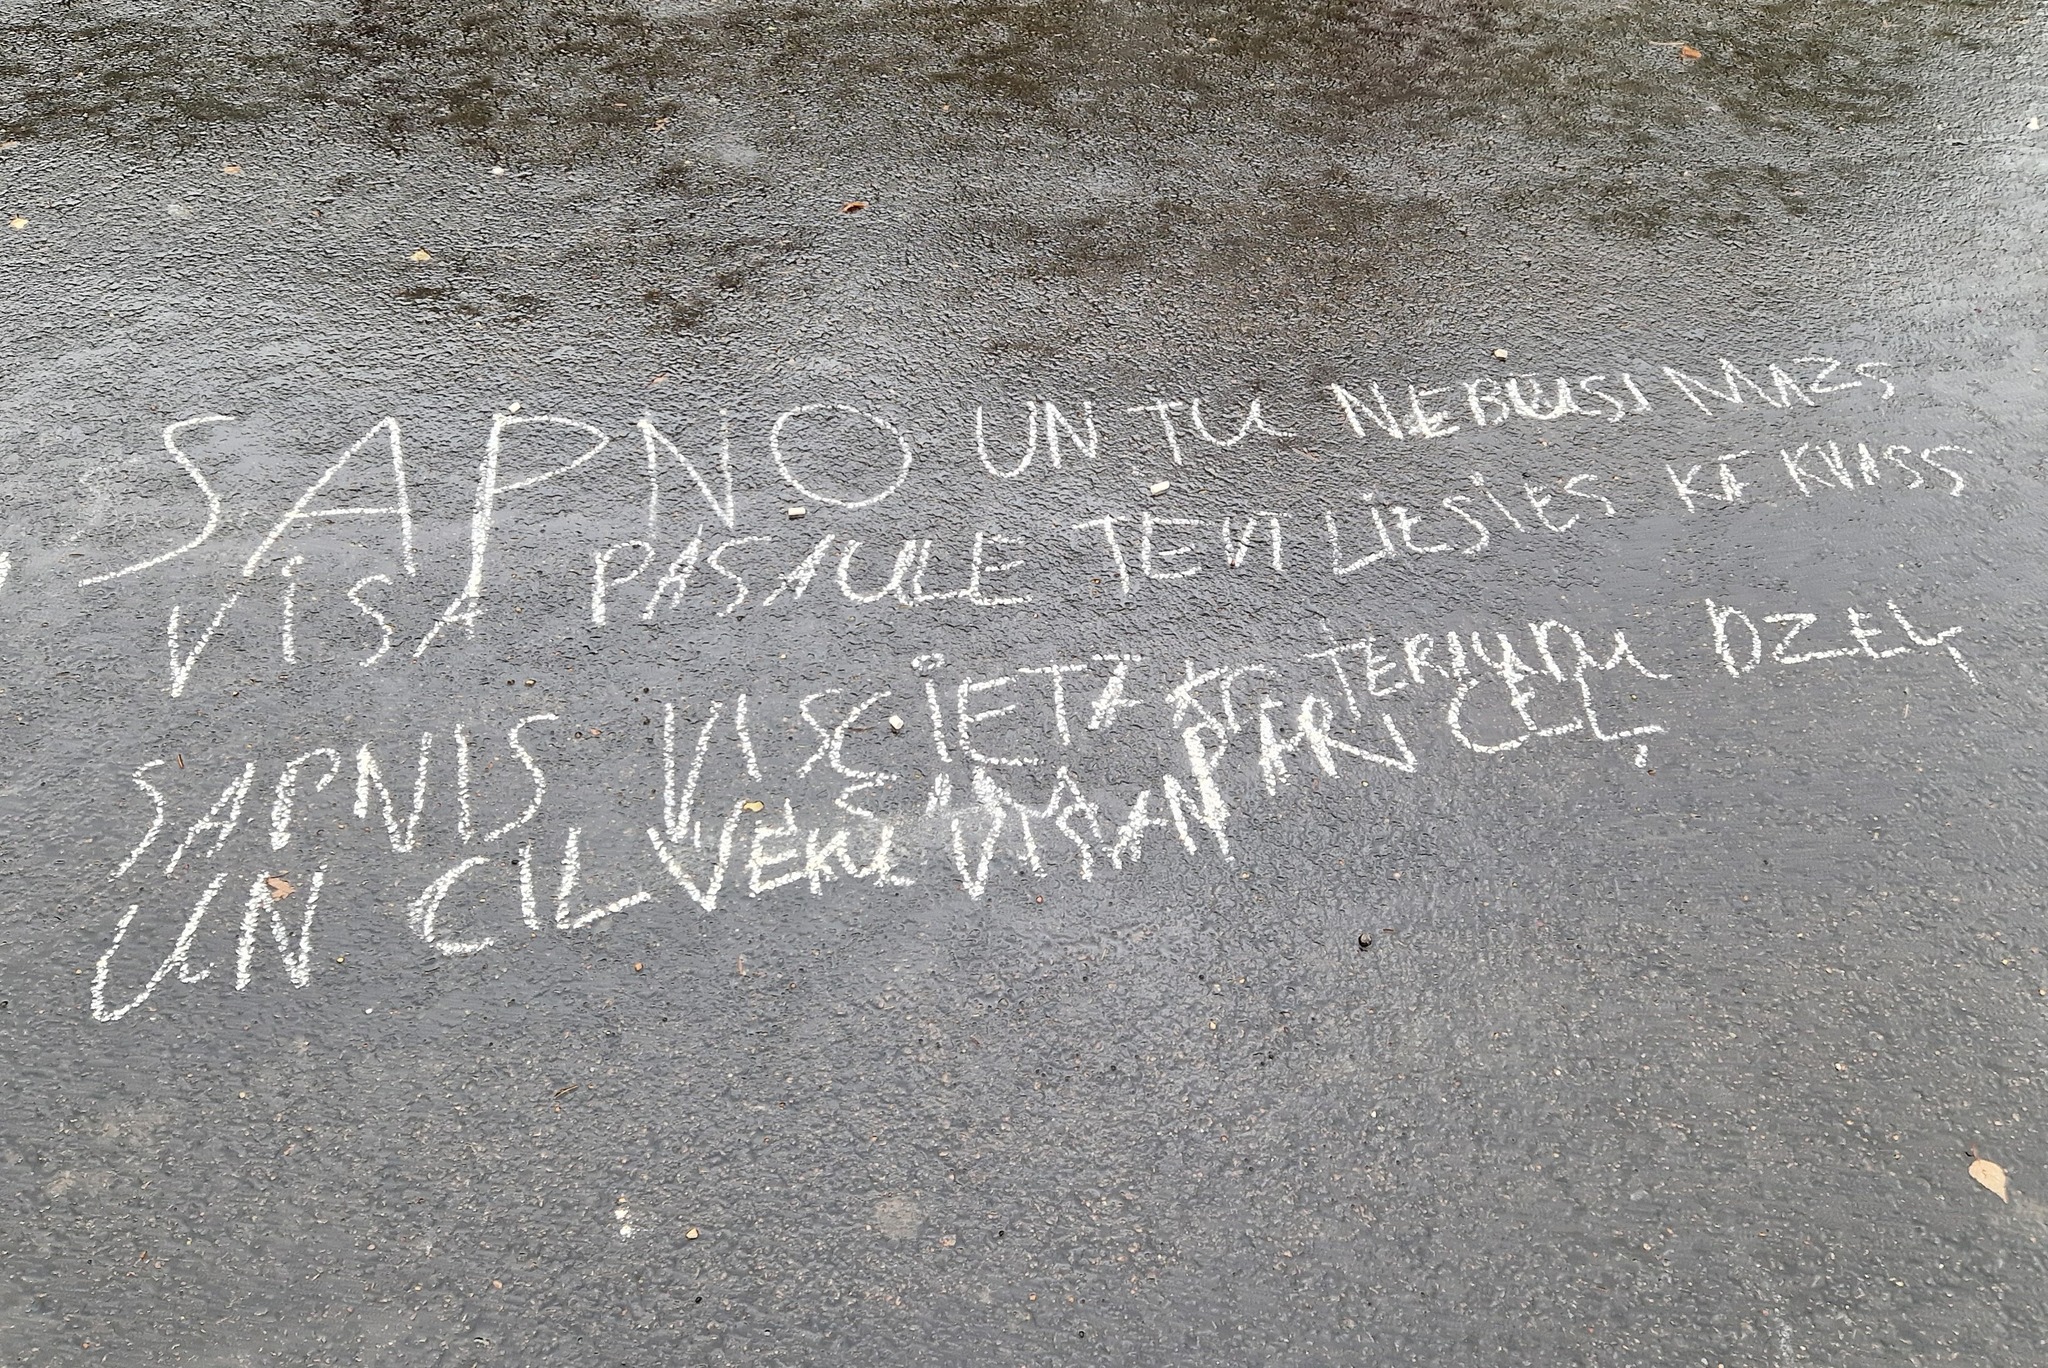 SAPŅO UN TU NEBŪSI MAZS
VISA PASAULE TEVĪ LIESIES KĀ KVASS
SAPNIS VISS IETA KĀ DZEĻ
UN CILVĒKU VISAM PĀRI CEĻ